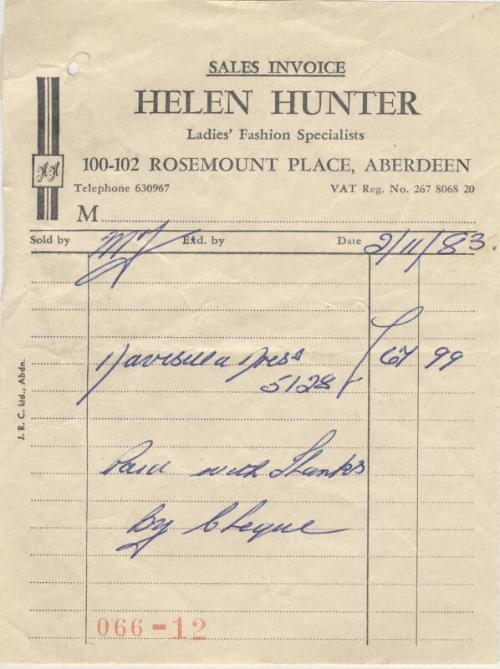 SALES INVOICE
HELEN HUNTER
Ladies' Fashion Specialists
HH
100-102 ROSEMOUNT PLACE, ABERDEEN
Telephone 630967 VAT Reg. No. 267 8068 20
M
Sold by Exd. by Date 2/11/83.
1 Dress £67 99
5128
Paid with Thanks
by Cheque
J. R. C. Ltd., Abdn.
066-12